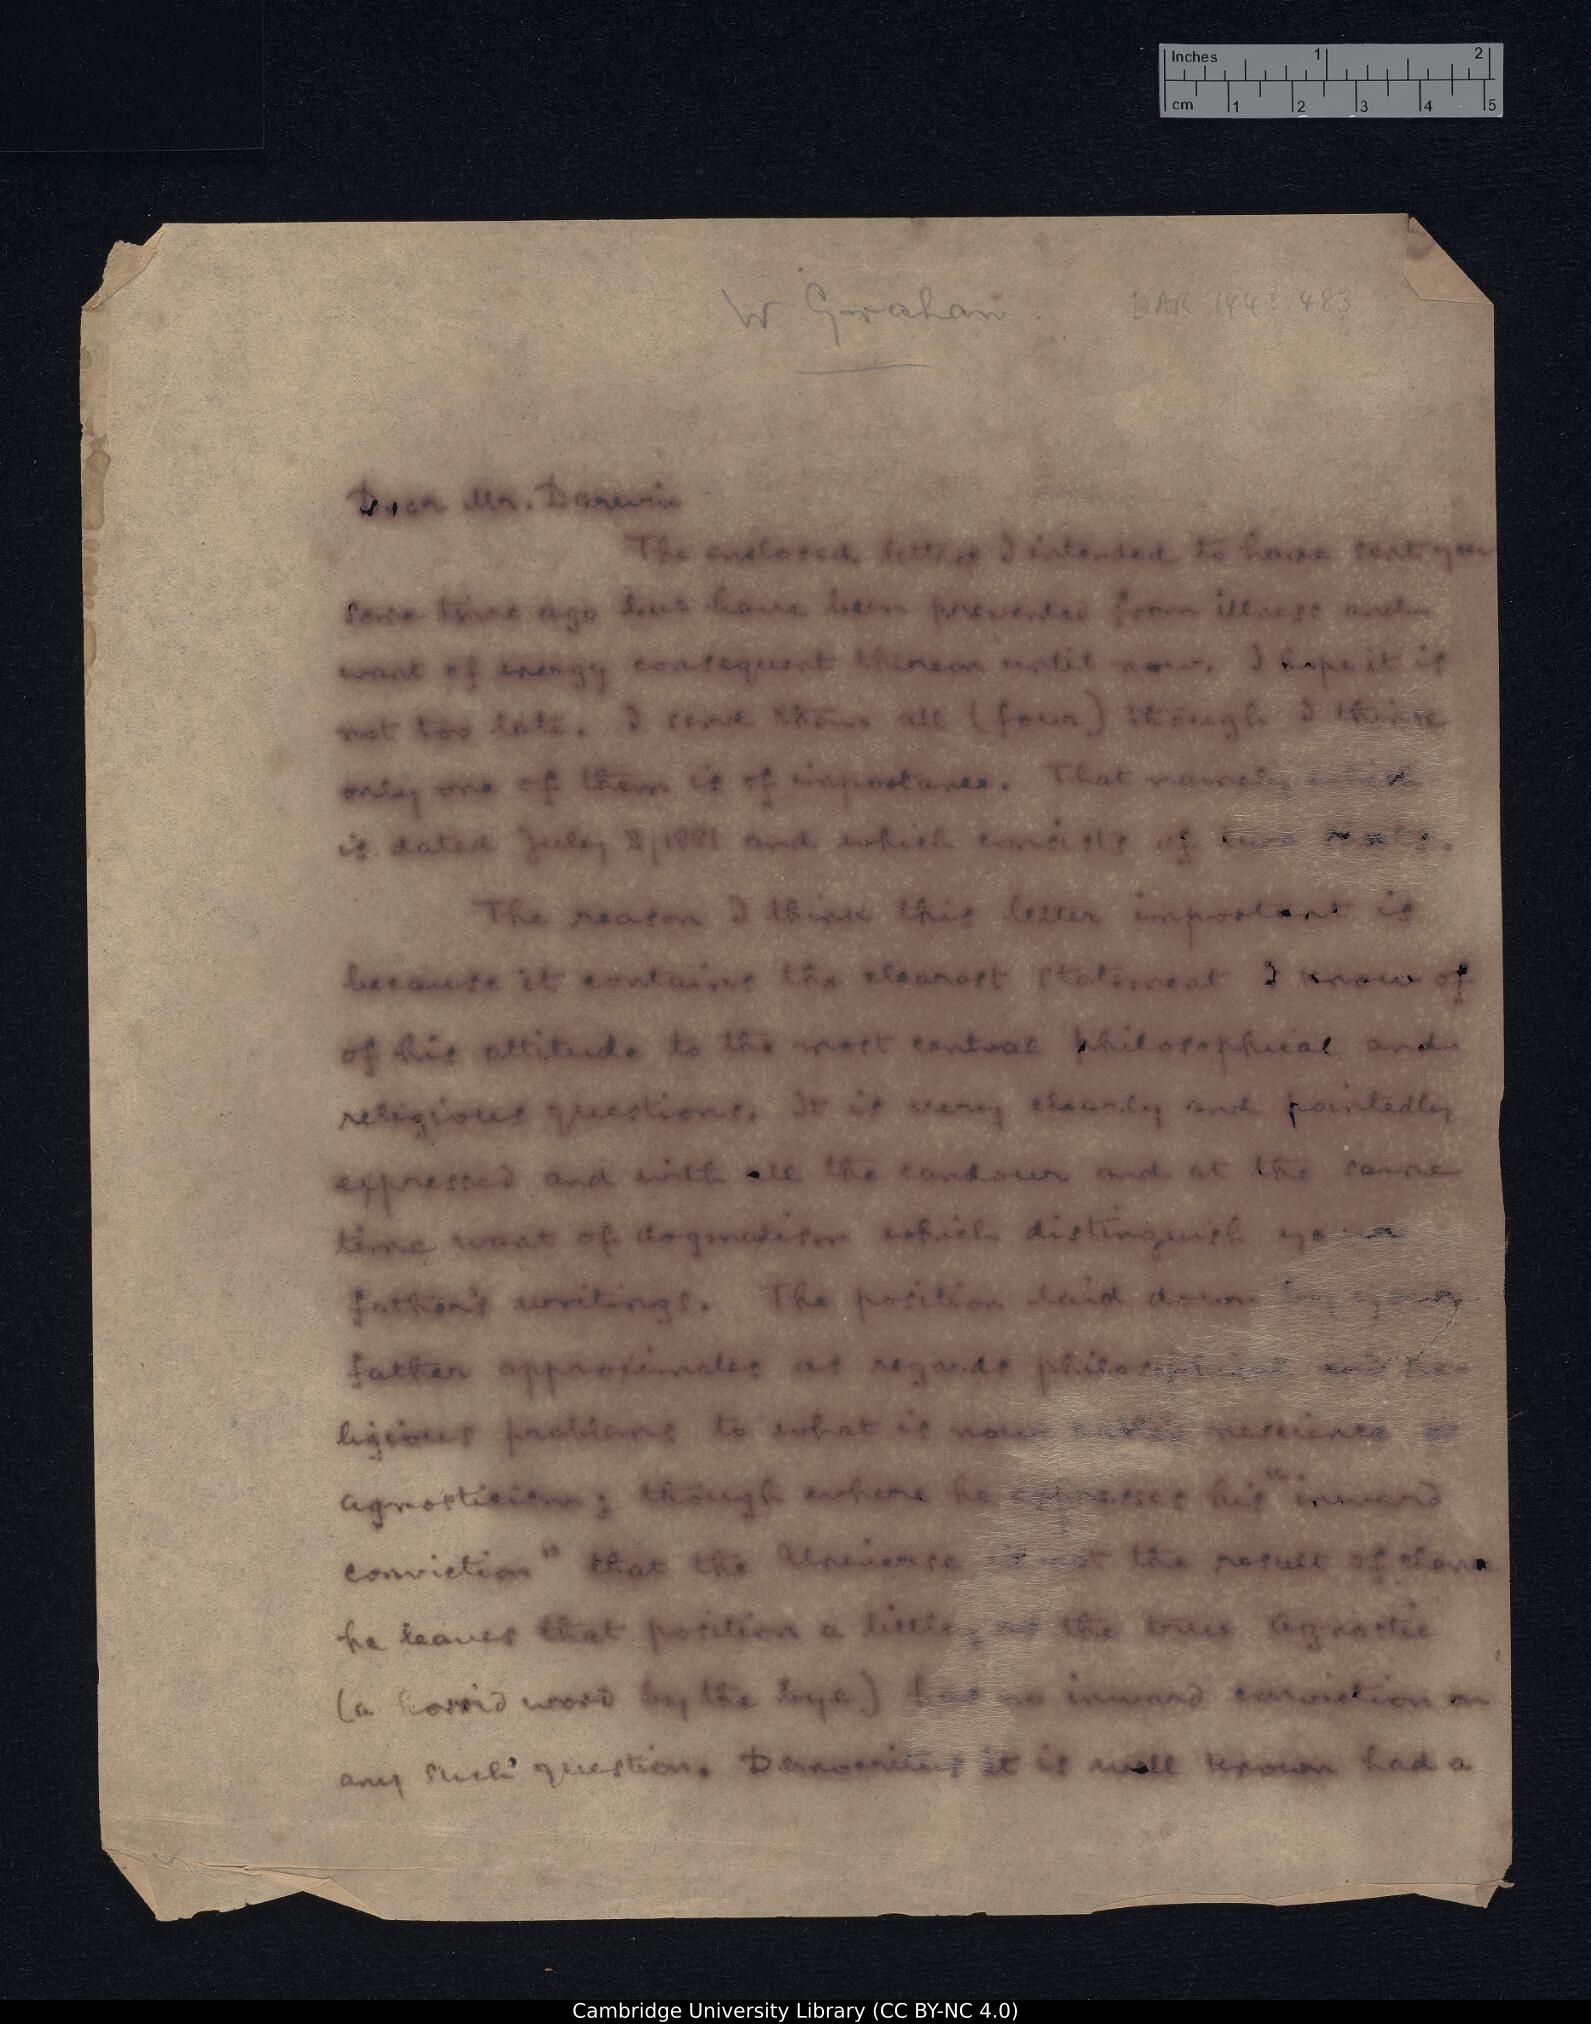 Inches 1 2
cm 1 2 3 4 5
W Graham
DAR 144: 483
Dear Mr. Darwin
The enclosed letters I intended to have sent you
some time ago but have been prevented from illness and
want of energy consequent thereon until now. I hope it is
not too late. I send them all (four) though I think
only one of them is of importance. That namely which
is dated July 3/1881 and which consists of two
The reason I think this letter important is
because it contains the clearest statement I know of
of his attitude to the most central philosophical and
religious questions. It is very clearly and pointedly
expressed and with all the candour and at the same
time want of dogmatism which distinguish your
father's writings. The position laid down by your
father approximates as regards philosophical and re-
ligious problems to what is now called nescience or
agnosticism; though where he expresses his "inward
conviction" that the Universe is not the result of chance
he leaves that position a little, as the true agnostic
(a horrid word by the bye) has no inward conviction on
any such question. Democritus it is well known had a
Cambridge University Library (CC BY-NC 4.0)